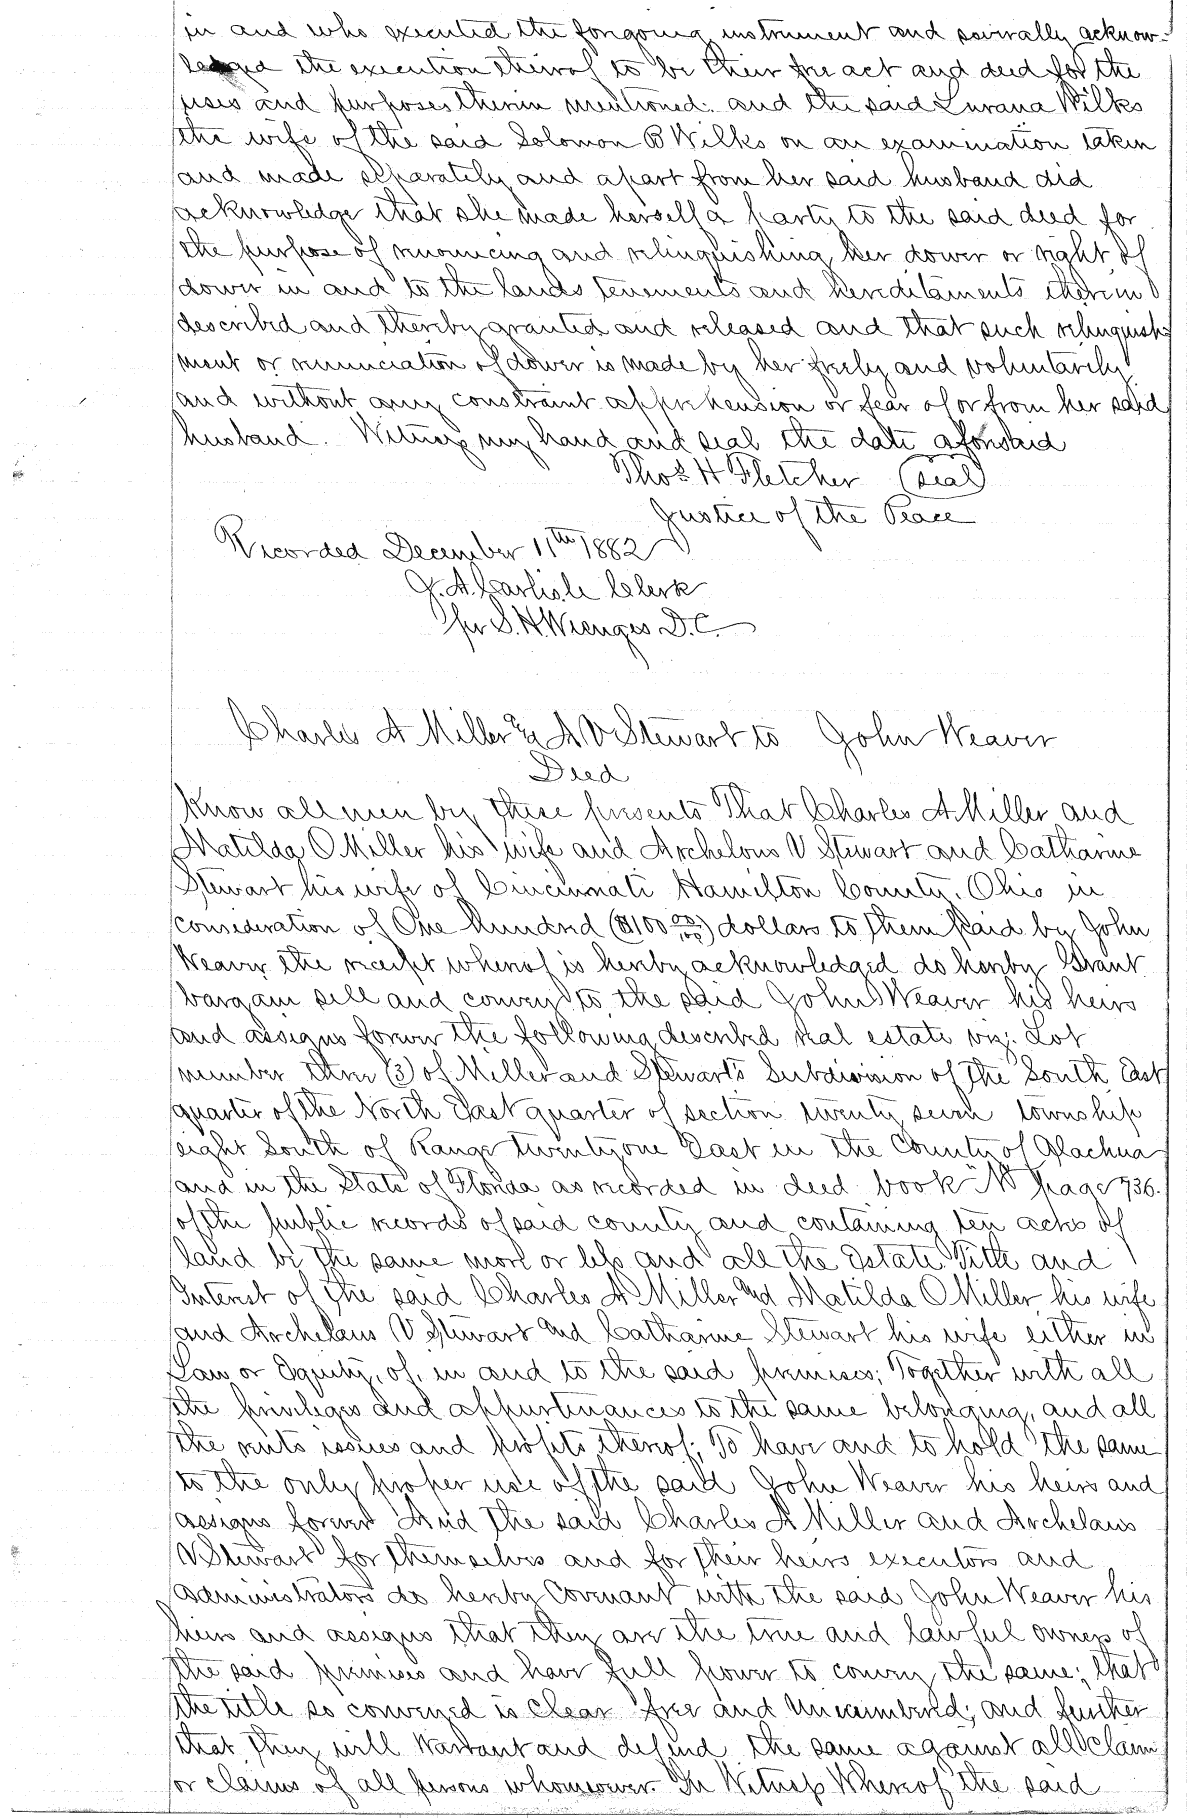 in and who executed the forgoing instrument and severally acknow-
ledged the execution thereof to be their free act and deed for the
uses and purposes therein mentioned. and the said Lurana Wilks
the wife of the said Solomon B Wilks on an examination taken
and made separately and apart from her said husband did
acknowledge that she made herself a party to the said deed for
the purpose of renouncing and relinquishing her dower or right of
dower in and to the lands tenements and hereditaments therein
described and thereby granted and released and that such relinquish-
ment or renunciation of dower is made by her freely and voluntarily
and without any constraint apprehension or fear of or from her said
husband. Witness my hand and seal the date aforesaid
Thos. H Fletcher (seal)
Justice of the Peace
Recorded December 11th 1882
J. A. Carlisle Clerk
per S. H. Wienges D.C.
Charles A Miller & A V Stewart to John Weaver
Deed
Know all men by these presents That Charles A Miller and
Matilda O Miller his wife and Archelous V Stewart and Catharine
Stewart his wife of Cincinnati Hamilton County, Ohio in
consideration of One hundred ($100 00/100) dollars to them paid by John
Weaver the receipt whereof is hereby acknowledged do hereby Grant
bargain sell and convey to the said John Weaver his heirs
and assigns forever the following described real estate viz. Lot
number three (3) of Miller and Stewart's Subdivision of the South East
quarter of the North East quarter of section twenty seven township
eight South of Range twenty one East in the County of Alachua
and in the State of Florida as recorded in deed book "N" page 736.
of the public records of said county and containing ten acres of
land be the same more or less and all the Estate Title and
Interest of the said Charles A Miller and Matilda O Miller his wife
and Archelaus V Stewart and Catharine Stewart his wife either in
Law or Equity, of, in and to the said premises; Together with all
the privileges and appurtenances to the same belonging, and all
the rents issues and profits thereof; To have and to hold the same
to the only proper use of the said John Weaver his heirs and
assigns forever And the said Charles A Miller and Archelaus
V Stewart for themselves and for their heirs executors and
administrators do hereby Covenant with the said John Weaver his
heirs and assigns that they are the true and lawful owners of
the said premises and have full power to convey the same; that
the title so conveyed is clear free and Unincumbered; and further
that they will Warrant and defend the same against all claim
or claims of all persons whomsoever. In Witness Whereof the said